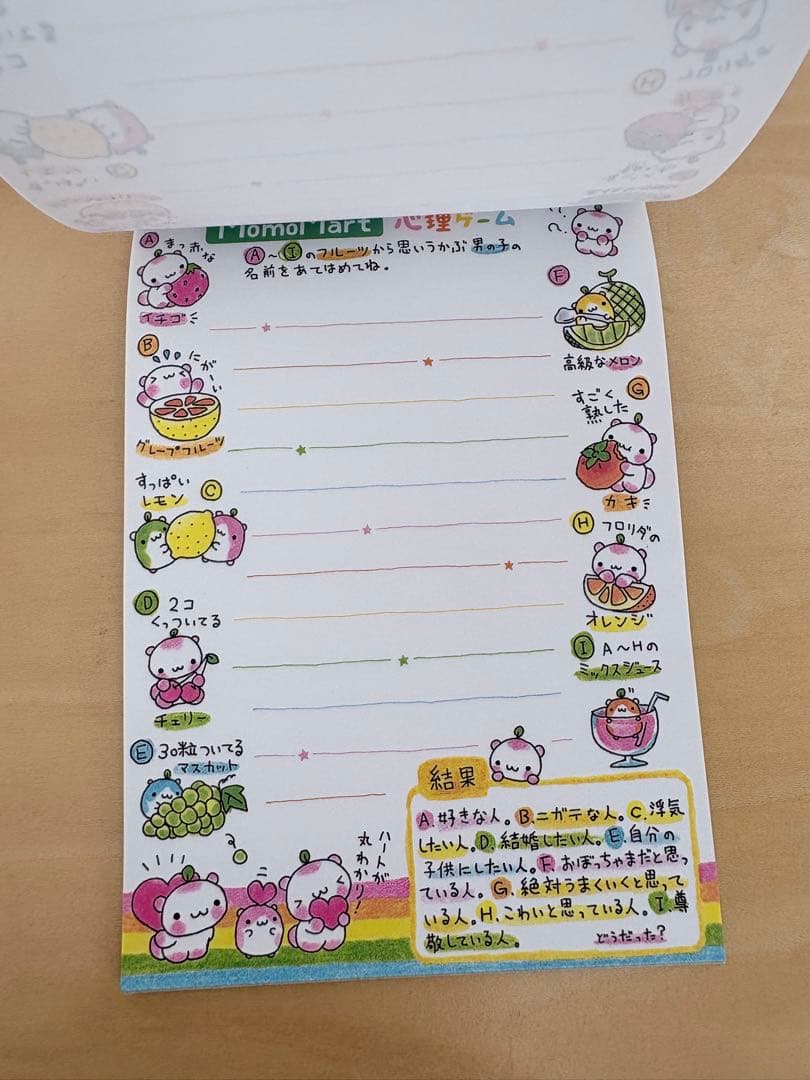 MomoMart 心理ゲーム
Ⓐ〜Ⓘのフルーツから思いうかぶ男の子の
名前をあてはめてね。
A
まっ赤な
イチゴ
B
にが〜い
グレープフルーツ
すっぱい
レモン
C
D
2コ
くっついてる
チェリー
E
30粒ついてる
マスカット
F
高級なメロン
G
すごく
熟した
カキ
H
フロリダの
オレンジ
I
A〜Hの
ミックスジュース
ハートが
丸わかり!
結果
A.好きな人。B.ニガテな人。C.浮気
したい人。D.結婚したい人。E.自分の
子供にしたい人。F.おぼっちゃまだと思っ
ている人。G.絶対うまくいくと思って
いる人。H.こわいと思っている人。I.尊
敬している人。
どうだった?